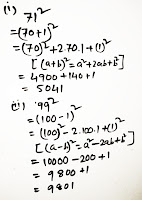 (i) 71²
= (70+1)²
= (70)² + 2.70.1 + (1)²
[(a+b)² = a²+2ab+b²]
= 4900 + 140 + 1
= 5041
(ii) 99²
= (100-1)²
= (100)² - 2.100.1 + (1)²
[(a-b)² = a²-2ab+b²]
= 10000 - 200 + 1
= 9800 + 1
= 9801